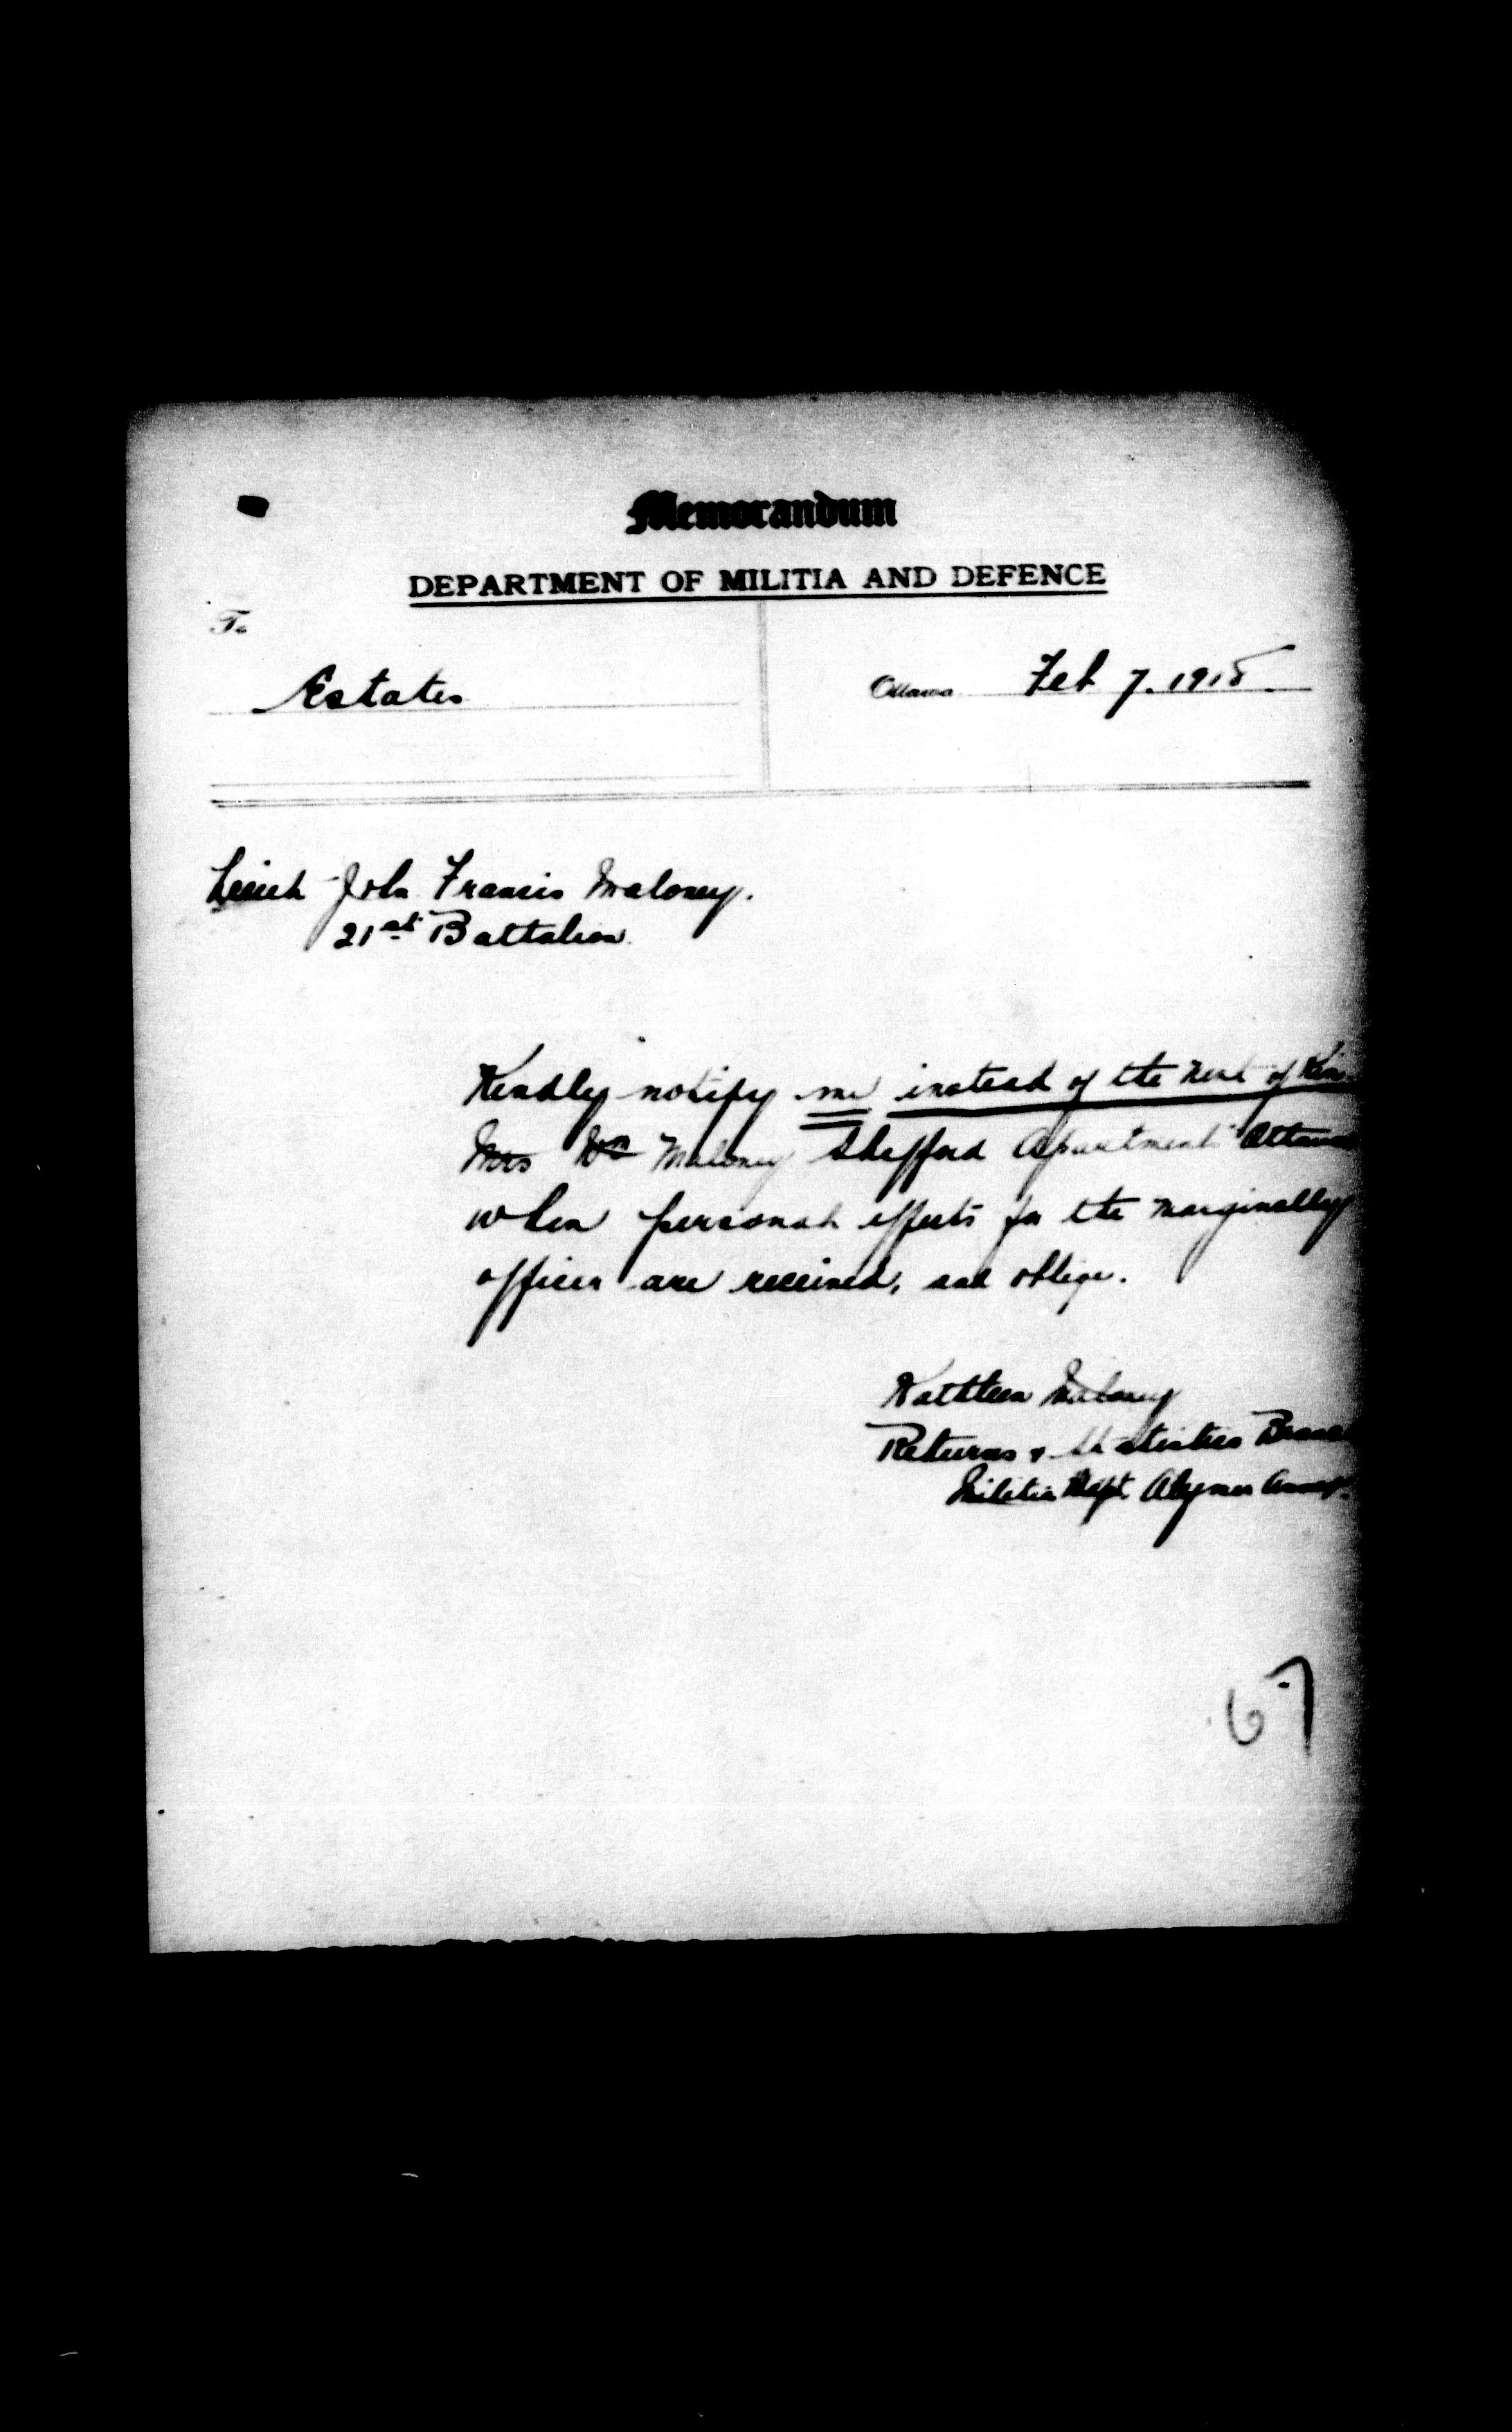 Memorandum
DEPARTMENT OF MILITIA AND DEFENCE
To
Estates
Ottawa Feb 7. 1918
Lieut John Francis Maloney.
21st Battalion
Kindly notify me instead of the next of Kin
Mrs Wm Maloney Shefford Apartment Ottawa
when personal effects for the marginally
officer are received, and oblige.
Kathleen Maloney
Returns & Statistics Branch
Militia Dept. Alymer Annex
67